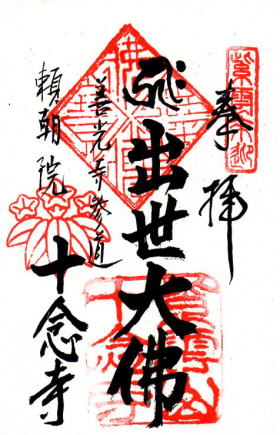 奉拝
出世大佛
善光寺参道
頼朝院
十念寺